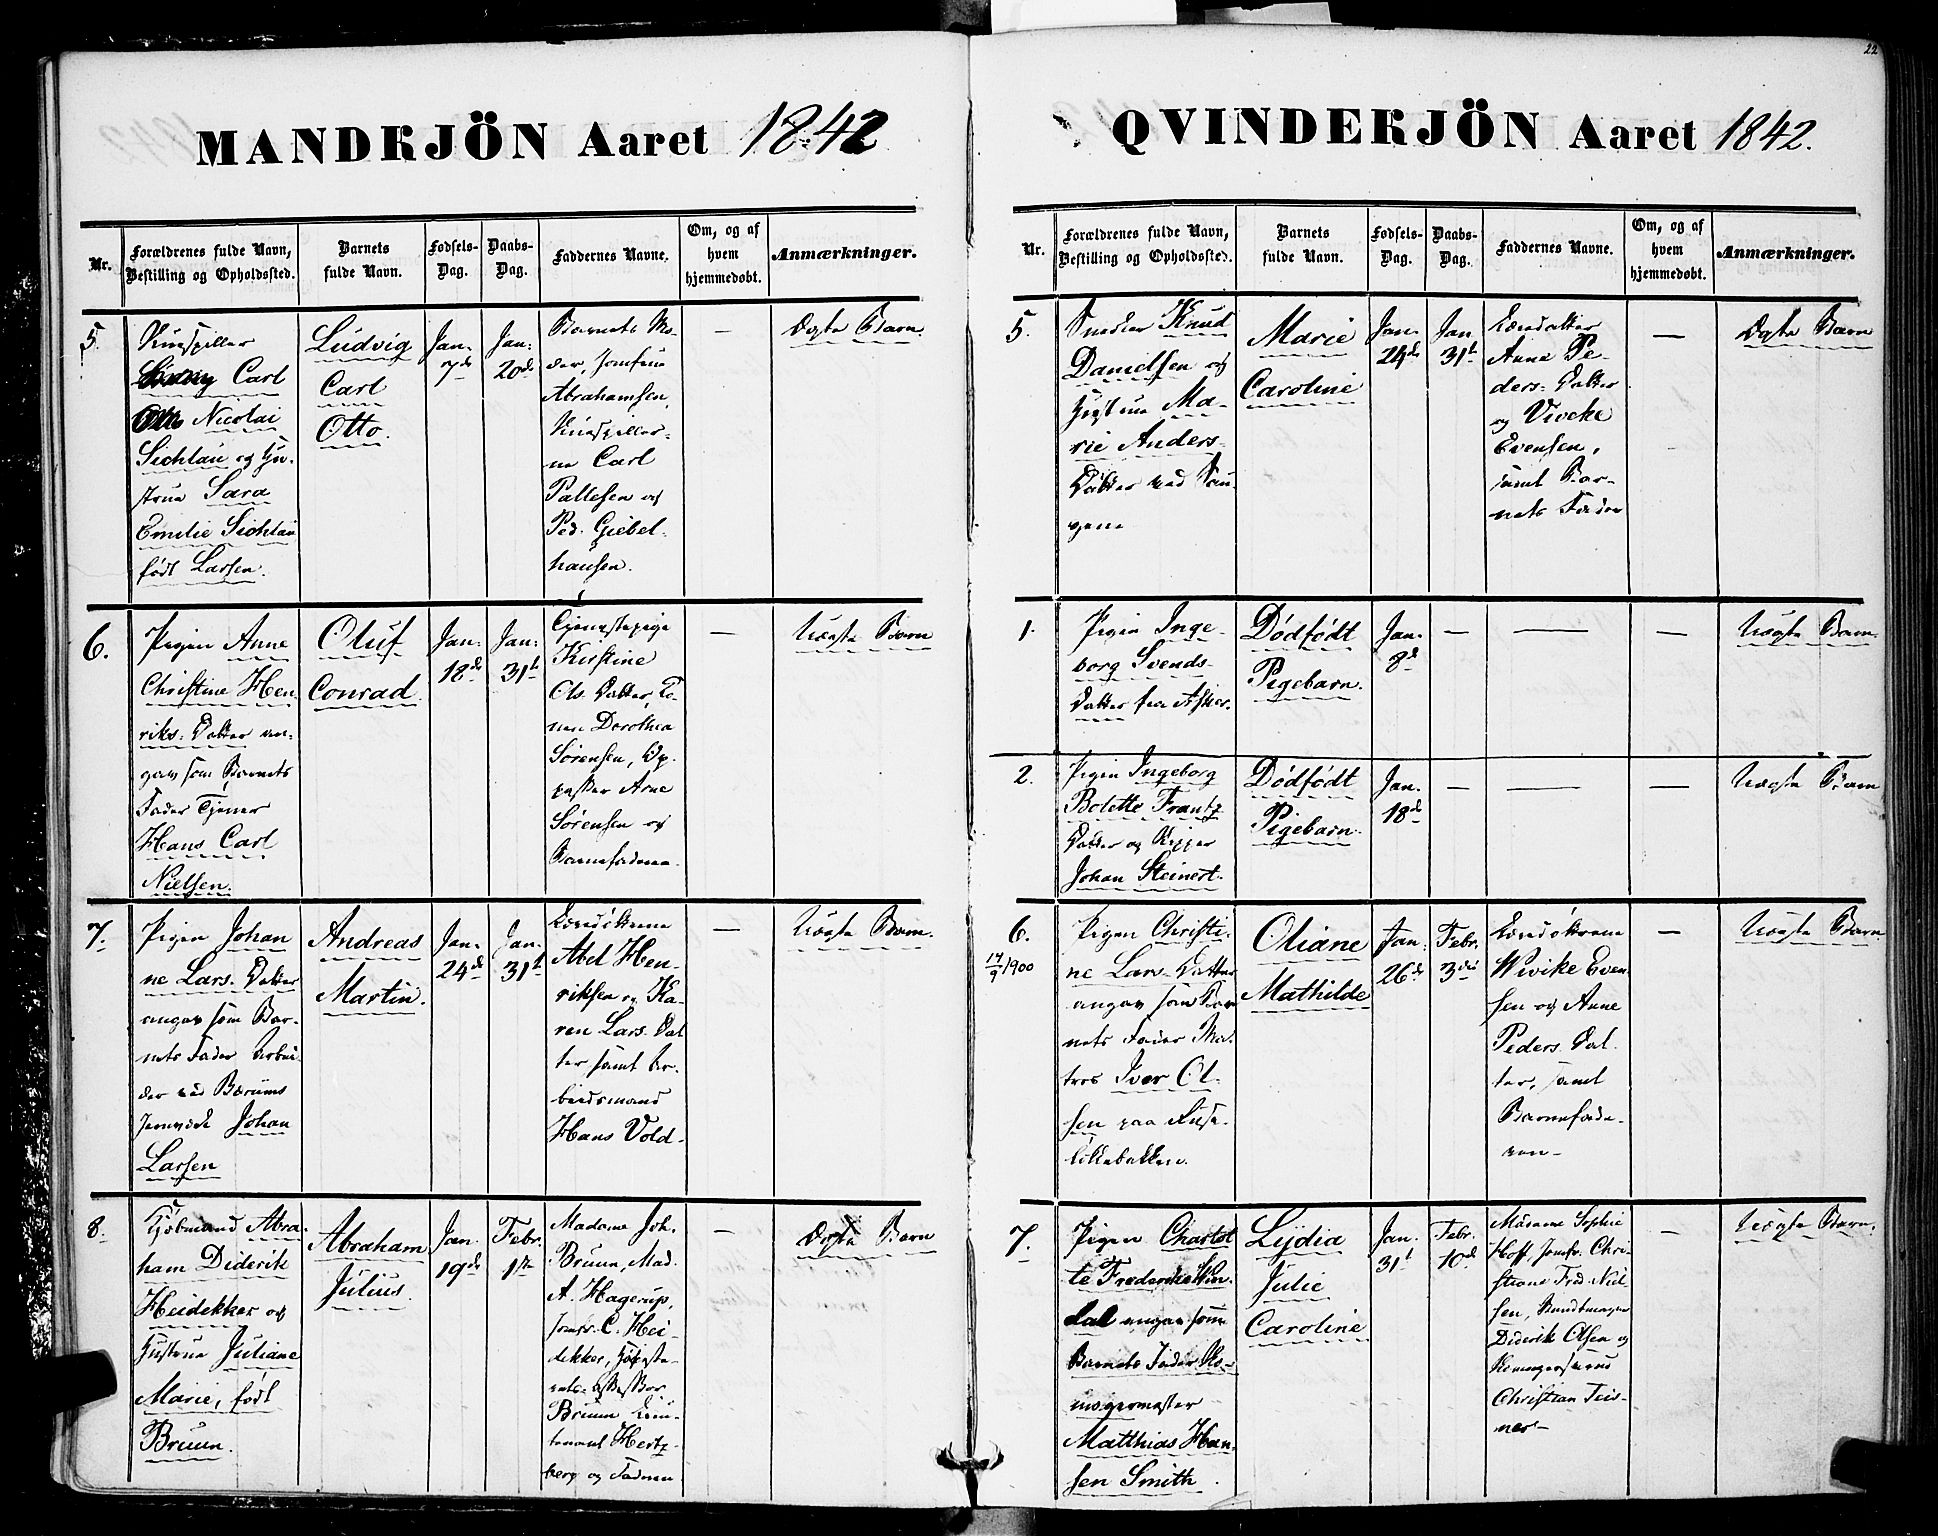 22
MANDKJÖN Aaret 1842
Nr.
Forældrenes fulde Navn,
Bestilling og Opholdssted.
Barnets
fulde Navn.
Fødsels-
Dag.
Daabs-
Dag.
Faddernes Navne.
Om, og af
hvem
hjemmedøbt.
Anmærkninger.
5.
Carl
Nicolai
Sichlau og Hu-
strue Sara
Emilie Sichlau
født Larsen.
Ludvig
Carl
Otto.
Jan.
7de
Jan:
20de
Barnets Mo-
der, Jomfrue
Abrahamsen,
ne Carl
Pallesen og
Ped. Giebel-
hausen.
—
Ægte Barn
6.
Pigen Anne
Christine Hen-
riks: Datter an-
gav som Barnets
Fader Tjener
Hans Carl
Nielsen.
Oluf
Conrad.
Jan:
18de
Jan:
31te
Tjenestepige
Kirstine
Ols. Datter,
Dorothea
Sørensen,
Arne
Sørensen og
Barnefaderen.
—
Uægte Barn
7.
Pigen Johan
ne Lars. Datter
angav som Bar-
nets Fader Arbei-
der ved Bærums
Jernværk Johan
Larsen
Andreas
Martin.
Jan.
24de
Jan.
31te
Abel Hen-
riksen og Ka-
ren Lars. Dat
ter samt Ar-
beidsmand
Hans Vold-
—
Uægte Barn.
8.
Kjøbmand Abra-
ham Diderik
Heidekker og
Hustrue Juliane
Marie, født
Bruun.
Abraham
Julius.
Jan.
19de
Febr.
1ste
Madame Joh.
Bruun, Mad.
A. Hagerup,
Jomfr. C. Hei-
dekker,
Bruun Leu-
tenant Hertz-
berg og Faderen
—
Ægte Barn
QVINDERKJÖN Aaret 1842.
Nr.
Forældrenes fulde Navn,
Bestilling og Opholdssted.
Barnets
fulde Navn.
Fødsels-
Dag.
Daabs-
Dag.
Faddernes Navne.
Om, og af
hvem
hjemmedøbt.
Anmærkninger.
5.
Snedker Knud
Danielsen og
Hustrue Ma-
rie Anders-
Datter ved
Marie
Caroline
Jan.
24de
Jan
31te
Anne Pe-
ders: Datter
og Vivcke
Evensen,
samt Bar-
nets Fader
—
Ægte Barn
1.
Pigen Inge-
borg Svends-
Datter fra Asker.
Dødfødt
Pigebarn.
Jan.
8de
—
—
—
Uægte Barn.
2.
Pigen Ingeborg
Bolette Frantz
Datter og
Johan Steinert.
Dødfødt
Pigebarn.
Jan.
18de
—
—
—
Uægte Barn
6.
14/9 1900
Pigen Christi-
ne Lars-Datter
angav som Bar
nets Fader Ma-
tros Iver Ol-
sen paa Ruse-
løkkebakken.
Oliane
Mathilde
Jan.
26de
Febr.
3die
Wivike Even
sen og Anne
Peders. Dat-
ter, samt
Barnefade-
ren-
—
Uægte Barn
7.
Pigen Charlot
te Frederikke Win-
dal angav som
Barnets Fader
Matthias Han-
sen Smith.
Lydia
Julie
Caroline
Jan.
31te
Febr.
10de
Madame Sophie
Hoff, Jomfr. Chri-
stiane Fred. Niel-
sen, Bundtmager
Diderik Olsen og
Christian Teis-
ner-
—
Uægte Barn.